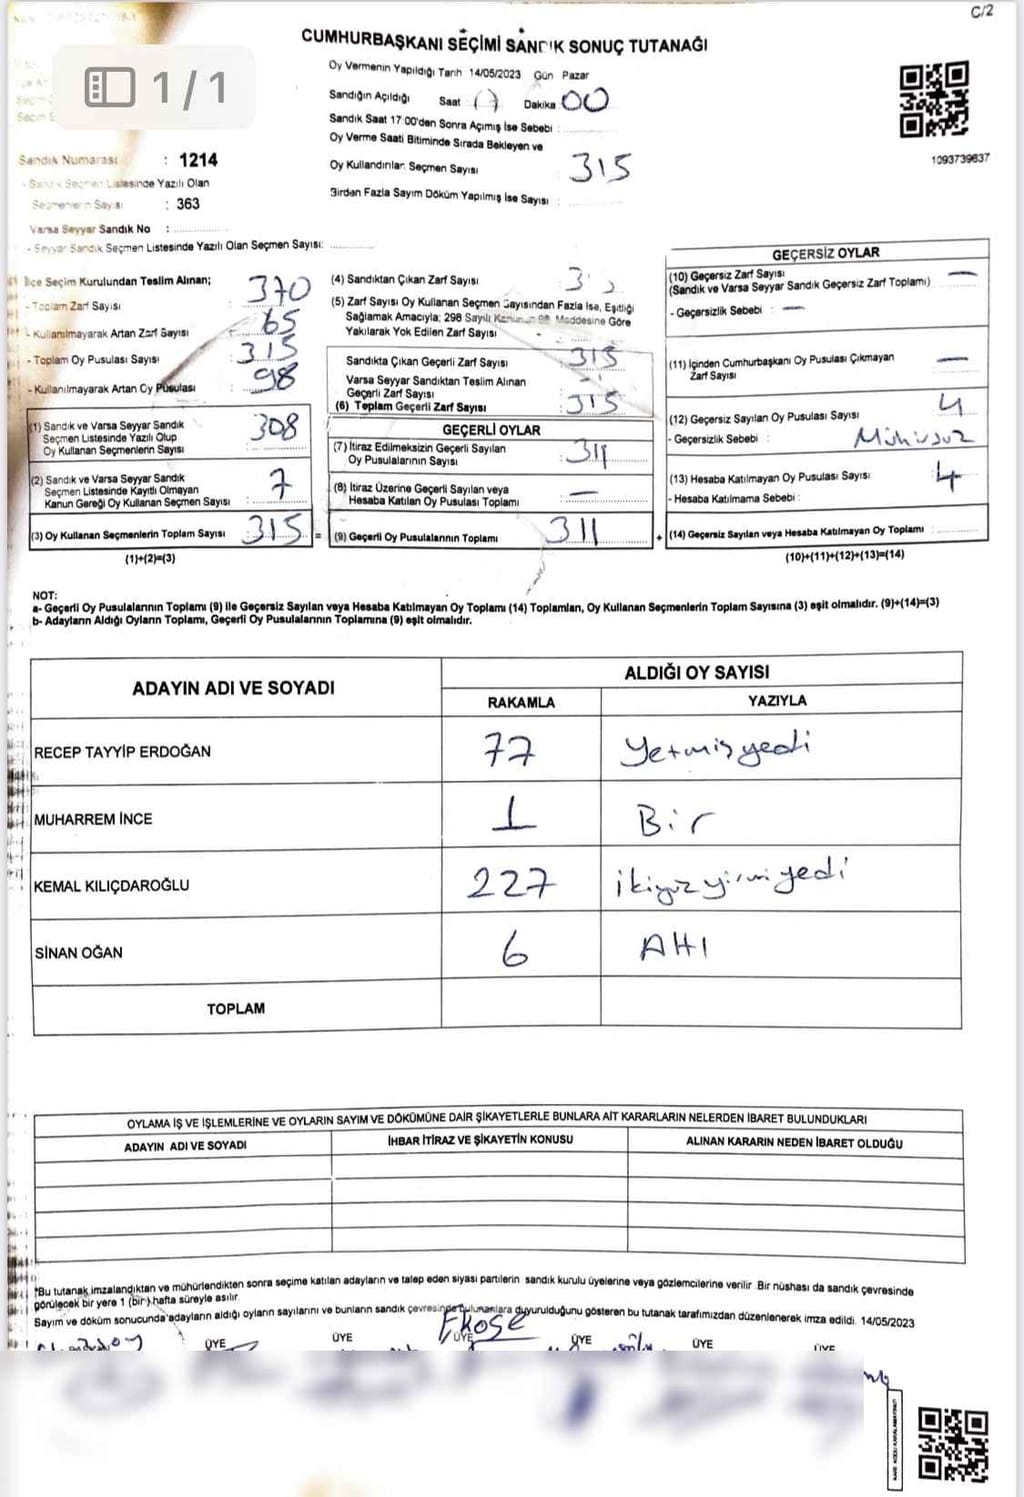 C/2
1 / 1
CUMHURBAŞKANI SEÇİMİ SANDIK SONUÇ TUTANAĞI
Oy Vermenin Yapıldığı Tarih 14/05/2023 Gün Pazar
Sandığın Açıldığı Saat 17 Dakika 00
Sandık Saat 17:00'den Sonra Açımış İse Sebebi :
Oy Verme Saati Bitiminde Sırada Bekleyen ve
Oy Kullandırılan Seçmen Sayısı : 315
Birden Fazla Sayım Döküm Yapılmış İse Sayısı :
1093739637
Sandık Numarası : 1214
- Sandık Seçmen Listesinde Yazılı Olan
Seçmenlerin Sayısı : 363
Varsa Seyyar Sandık No :
- Seyyar Sandık Seçmen Listesinde Yazılı Olan Seçmen Sayısı:
İlçe Seçim Kurulundan Teslim Alınan;
- Toplam Zarf Sayısı : 370
- Kullanılmayarak Artan Zarf Sayısı : 65
- Toplam Oy Pusulası Sayısı : 315
- Kullanılmayarak Artan Oy Pusulası : 98
(1) Sandık ve Varsa Seyyar Sandık
Seçmen Listesinde Yazılı Olup
Oy Kullanan Seçmenlerin Sayısı : 308
(2) Sandık ve Varsa Seyyar Sandık
Seçmen Listesinde Kayıtlı Olmayan
Kanun Gereği Oy Kullanan Seçmen Sayısı : 7
(3) Oy Kullanan Seçmenlerin Toplam Sayısı : 315 =
(1)+(2)=(3)
(4) Sandıktan Çıkan Zarf Sayısı
(5) Zarf Sayısı Oy Kullanan Seçmen Sayısından Fazla İse, Eşitliği
Sağlamak Amacıyla; 298 Sayılı Kanunun 98. Maddesine Göre
Yakılarak Yok Edilen Zarf Sayısı : -
Sandıkta Çıkan Geçerli Zarf Sayısı : 315
Varsa Seyyar Sandıktan Teslim Alınan
Geçerli Zarf Sayısı
(6) Toplam Geçerli Zarf Sayısı : 315
GEÇERLİ OYLAR
(7) İtiraz Edilmeksizin Geçerli Sayılan
Oy Pusulalarının Sayısı : 311
(8) İtiraz Üzerine Geçerli Sayılan veya
Hesaba Katılan Oy Pusulası Toplamı : —
(9) Geçerli Oy Pusulalarının Toplamı : 311 +
GEÇERSİZ OYLAR
(10) Geçersiz Zarf Sayısı : —
(Sandık ve Varsa Seyyar Sandık Geçersiz Zarf Toplamı)
- Geçersizlik Sebebi : —
(11) İçinden Cumhurbaşkanı Oy Pusulası Çıkmayan
Zarf Sayısı : —
(12) Geçersiz Sayılan Oy Pusulası Sayısı : 4
- Geçersizlik Sebebi : Mühürsüz
(13) Hesaba Katılmayan Oy Pusulası Sayısı : 4
- Hesaba Katılmama Sebebi :
(14) Geçersiz Sayılan veya Hesaba Katılmayan Oy Toplamı :
(10)+(11)+(12)+(13)=(14)
NOT:
a- Geçerli Oy Pusulalarının Toplamı (9) ile Geçersiz Sayılan veya Hesaba Katılmayan Oy Toplamı (14) Toplamları, Oy Kullanan Seçmenlerin Toplam Sayısına (3) eşit olmalıdır. (9)+(14)=(3)
b- Adayların Aldığı Oyların Toplamı, Geçerli Oy Pusulalarının Toplamına (9) eşit olmalıdır.
ADAYIN ADI VE SOYADI
ALDIĞI OY SAYISI
RAKAMLA YAZIYLA
RECEP TAYYİP ERDOĞAN 77 Yetmişyedi
MUHARREM İNCE 1 Bir
KEMAL KILIÇDAROĞLU 227 ikiyüzyirmiyedi
SİNAN OĞAN 6 Altı
TOPLAM
OYLAMA İŞ VE İŞLEMLERİNE VE OYLARIN SAYIM VE DÖKÜMÜNE DAİR ŞİKAYETLERLE BUNLARA AİT KARARLARIN NELERDEN İBARET BULUNDUKLARI
ADAYIN ADI VE SOYADI İHBAR İTİRAZ VE ŞİKAYETİN KONUSU ALINAN KARARIN NEDEN İBARET OLDUĞU
*Bu tutanak imzalandıktan ve mühürlendikten sonra seçime katılan adayların ve talep eden siyasi partilerin sandık kurulu üyelerine veya gözlemcilerine verilir. Bir nüshası da sandık çevresinde
görülecek bir yere 1 (bir) hafta süreyle asılır.
Sayım ve döküm sonucunda adayların aldığı oyların sayılarını ve bunların sandık çevresinde bulunanlara duyurulduğunu gösteren bu tutanak tarafımızdan düzenlenerek imza edildi. 14/05/2023
ÜYE ÜYE ÜYE ÜYE ÜYE ÜYE